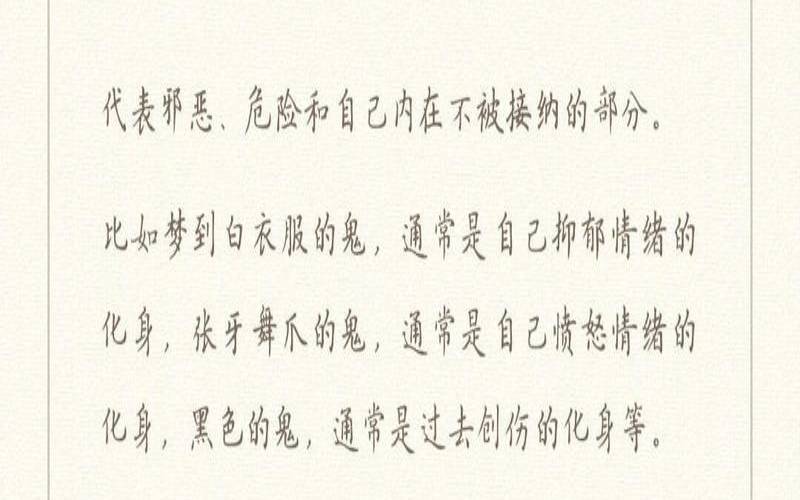 代表邪恶、危险和自己内在不被接纳的部分。
比如梦到白衣服的鬼，通常是自己抑郁情绪的
化身，张牙舞爪的鬼，通常是自己愤怒情绪的
化身，黑色的鬼，通常是过去创伤的化身等。